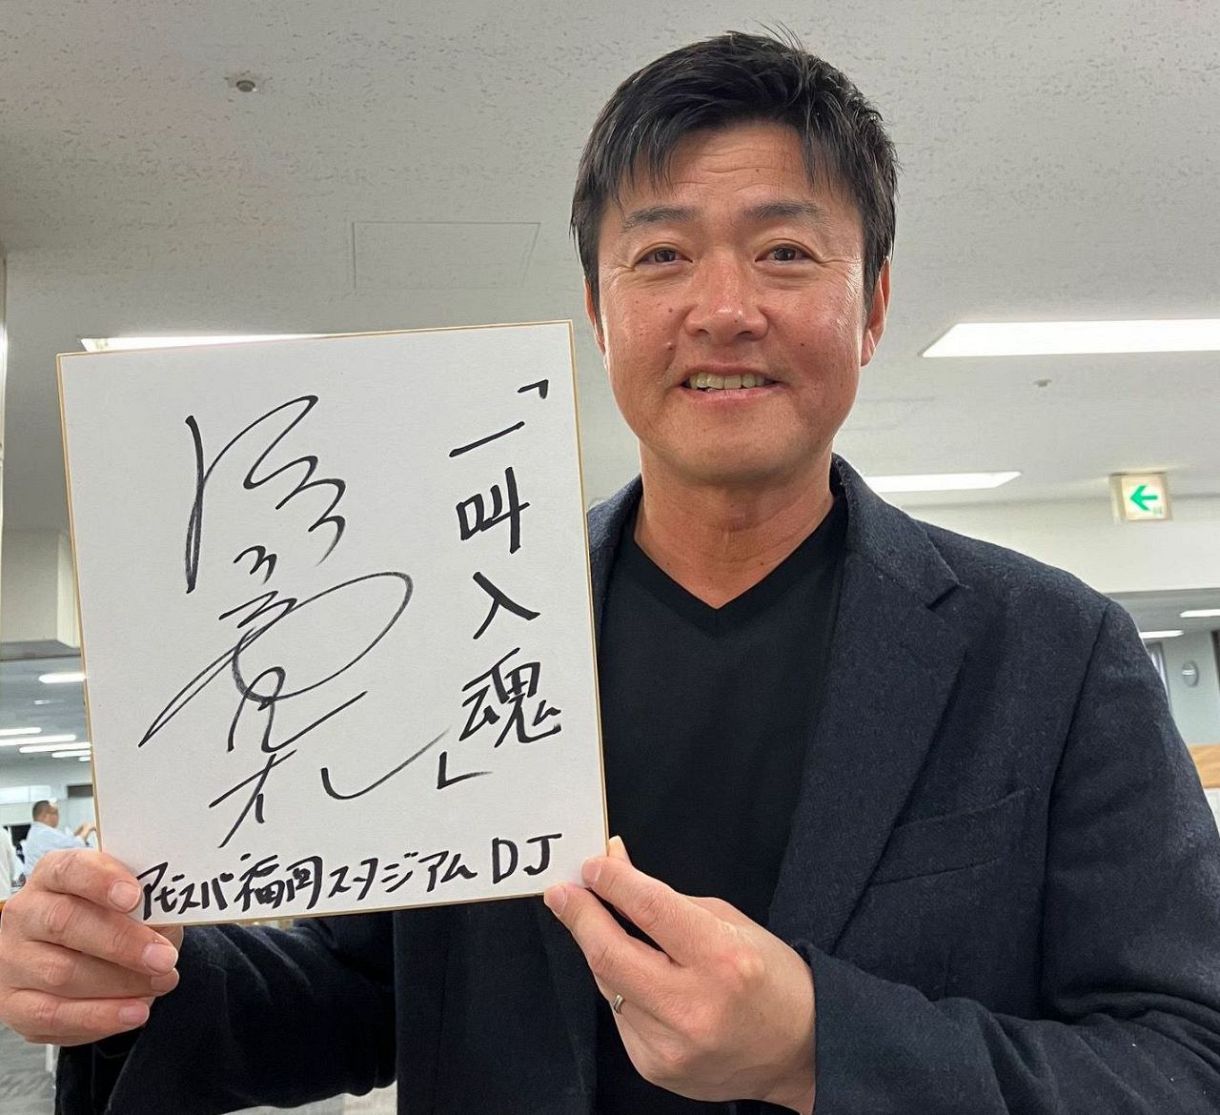 「一叫入魂」
アビスパ福岡スタジアムDJ